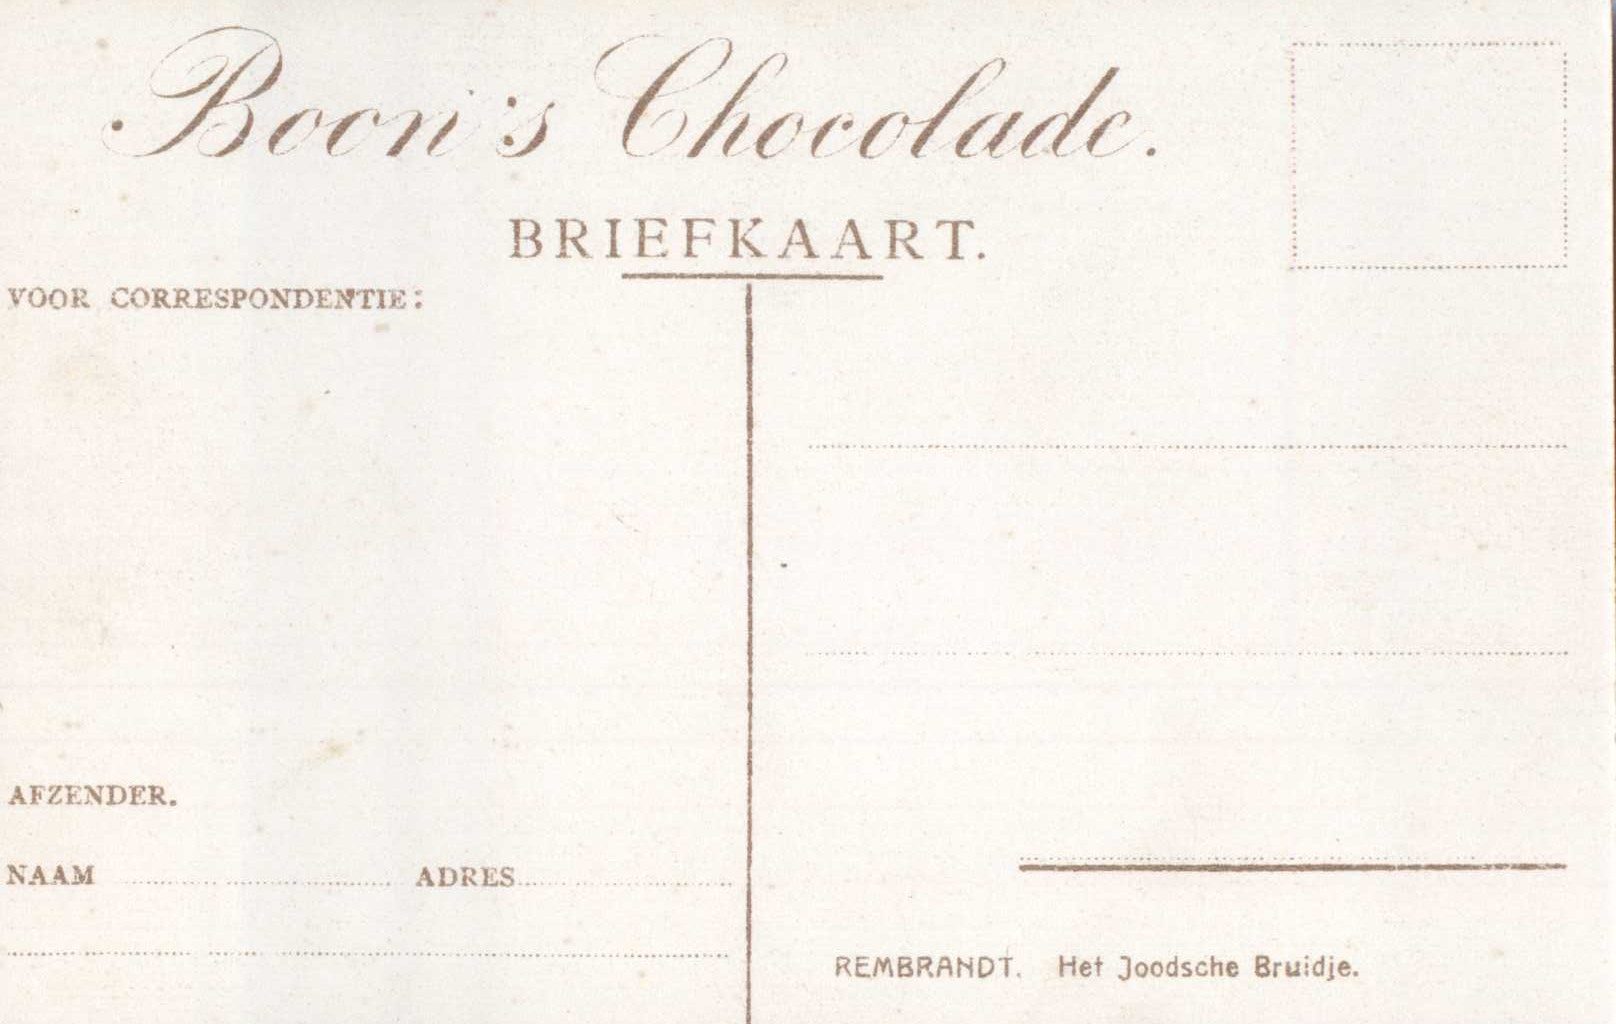 Boon's Chocolade.
BRIEFKAART.
VOOR CORRESPONDENTIE:
AFZENDER.
NAAM ADRES
REMBRANDT. Het Joodsche Bruidje.